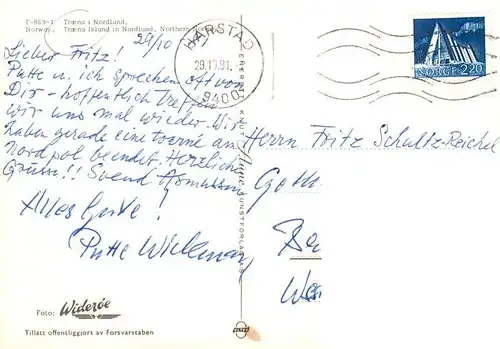 F-869-1 Træna i Nordland.
Norway. Træna Island in Nordland, Northern
29/10
HARSTAD
29.10.81.
9400
NORGE 2.20
Lieber Fritz!
Putte u. ich sprechen oft von
Dir - hoffentlich treffen
wir uns mal wieder. Wir
haben gerade eine tourné am
Nordpol beendet. Herzliche
Grüsse!! Svend Asmussen
Alles Gute!
Putte Wickman
Herrn Fritz Schultz-Reichel
Goth
Be
We
KUNSTFORLAG
Foto: Widerøe
Tillatt offentliggjort av Forsvarstaben